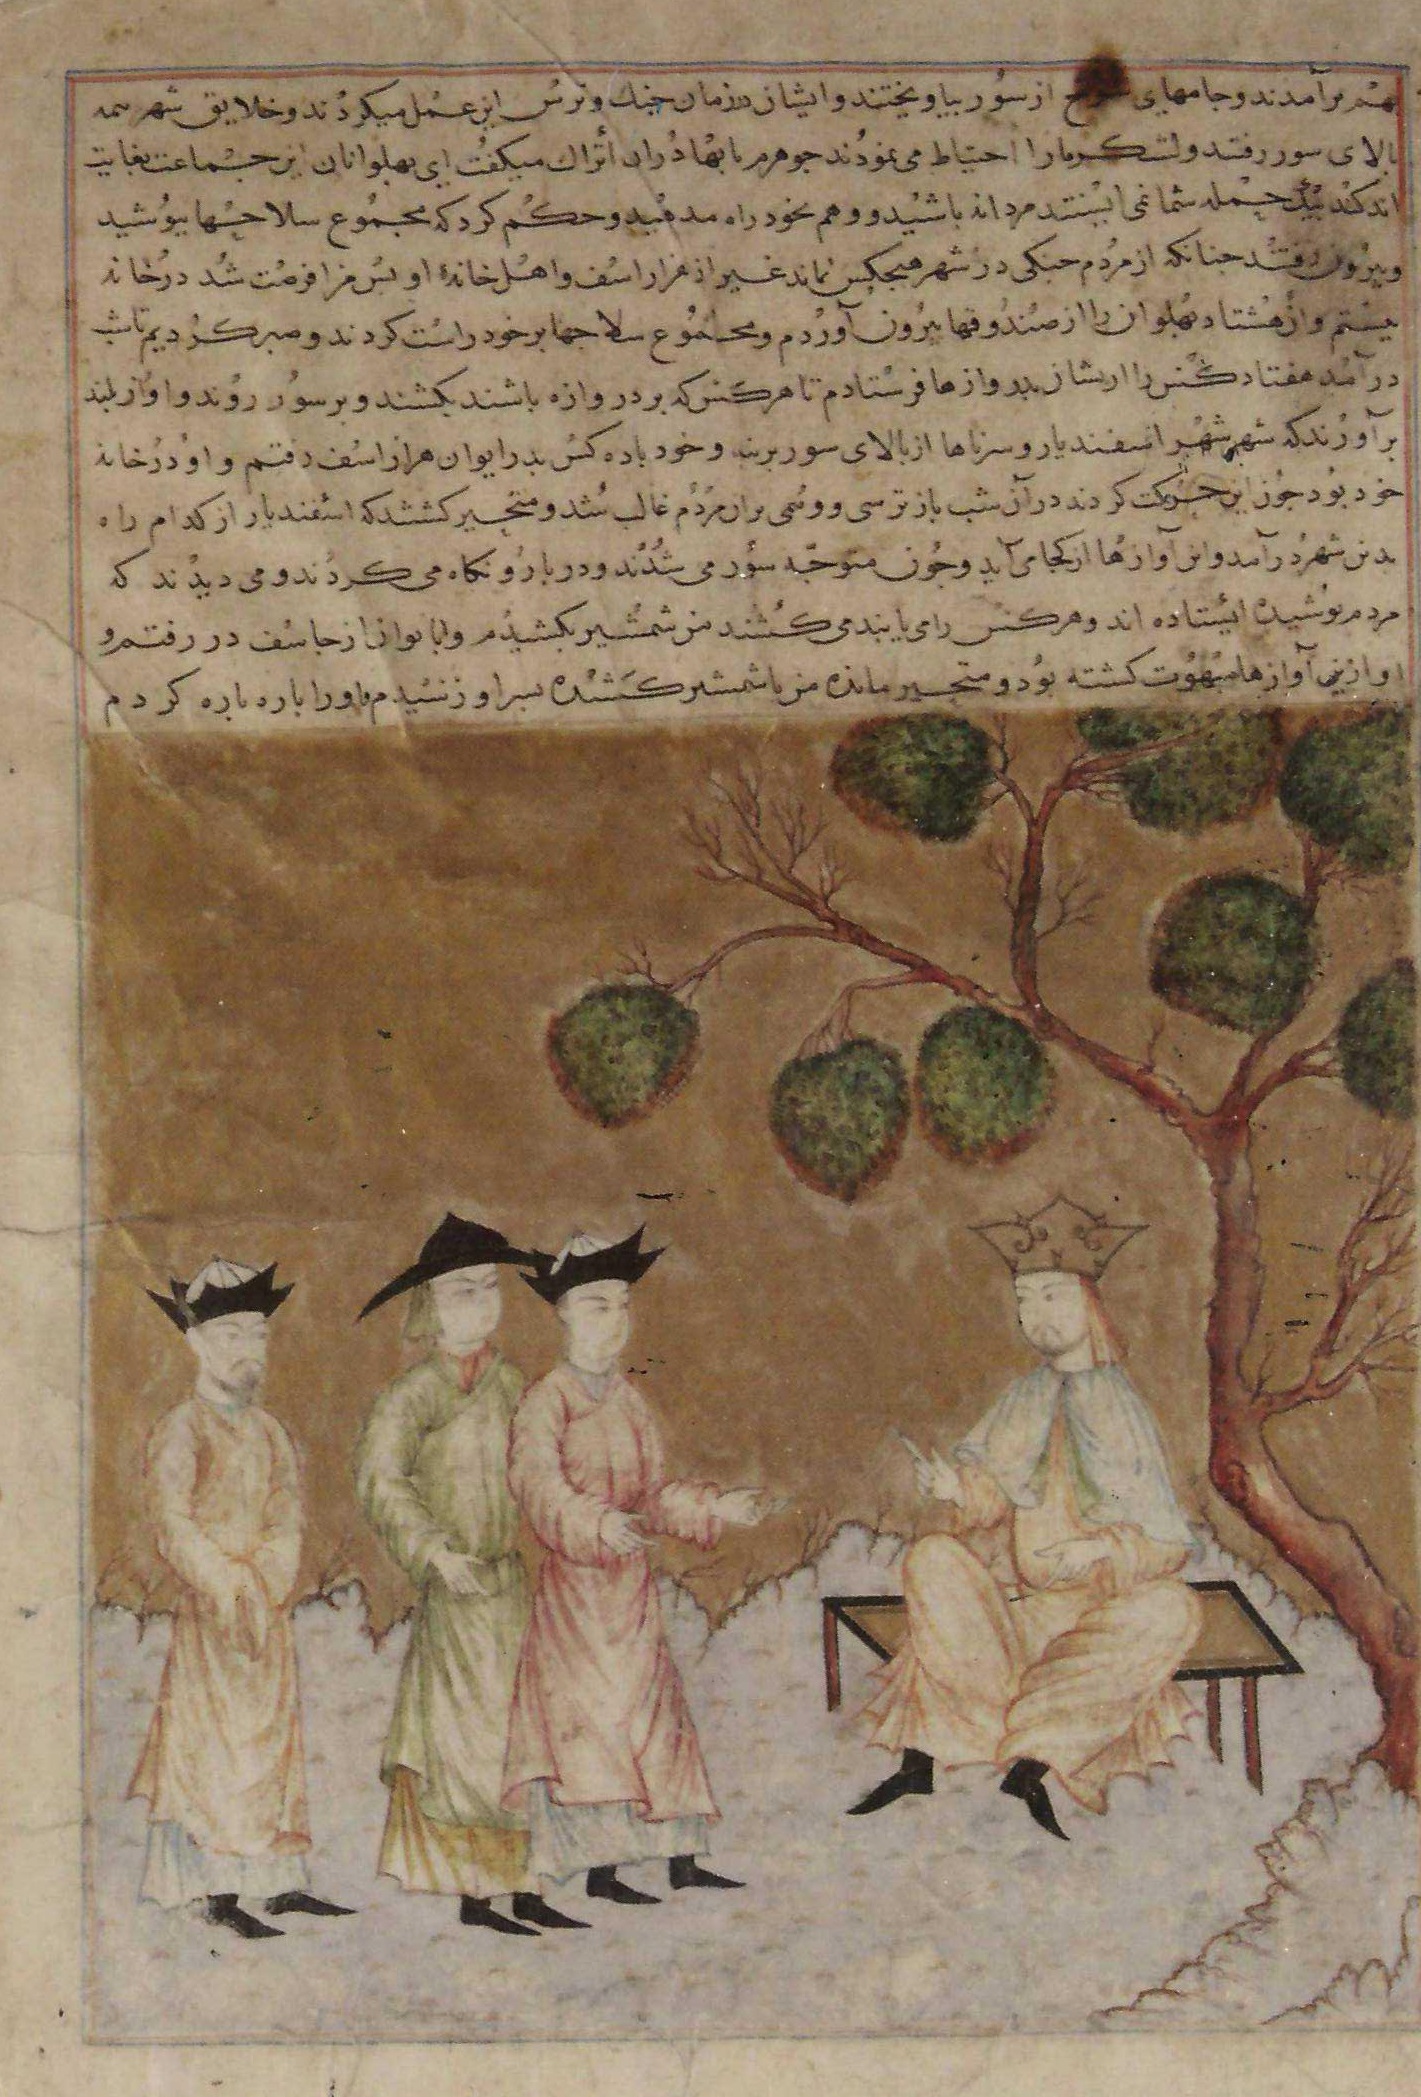 بهم برآمدند و جامهای از سور بیاویختند و ایشان در زمان جنك و ترس این عمل میکردند و خلایق شهر همه
بالای سور رفتند و را احتیاط می نمودند جو هرمر با بهادران أتراك میکفت ای بهلوانان این جماعت بغایت
اند حمله شما نمی مردانه باشید و وهم بخود راه مدهید و حکم کرد که مجموع سلاحها ببوشید
و بیرون رفتند جنانکه از مردم جنکی در شهر هیجکس نماند غیر از هزاراسف و اهل خانۀ او بس مرا فرصت شد در خانه
و از هشتاد بهلوان را از صندوقها بیرون آوردم و مجموع سلاحها بر خود راست کردند و صبر کردیم تا شب
در آمد هفتاد کس را ازیشان بدروازها فرستادم تا هر کس که بر دروازه باشند بکشند و بر سور روند و اواز بلند
برآورند که شهر شهر اسفندیار و سرناها از بالای سور و خود با ده کس بدر ایوان هزاراسف رفتم و او در خانۀ
خود بود جون این حرکت کردند در آن شب باز ترسی و وهمی بران مردم غالب شد و متحیر کشتند که اسفندیار از کدام راه
بدین شهر درآمد و این آوازها از کجا می آید و جون متوجه سور می شدند و در بارو نکاه می کردند و می دیدند که
مردم بوشیده ایستاده اند و هر کس را می یابند می کشند من شمشیر بکشیدم و در رفتم و
او ازین آوازها مبهوت کشته بود و متحیر مانده من با شمشیر کشیده بسر او رسیدم و او را باره باره کردم